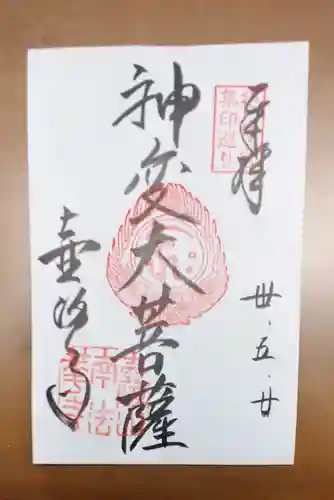 奉拝
卅・五・廿
集印巡り
神変大菩薩
壷阪寺
南法